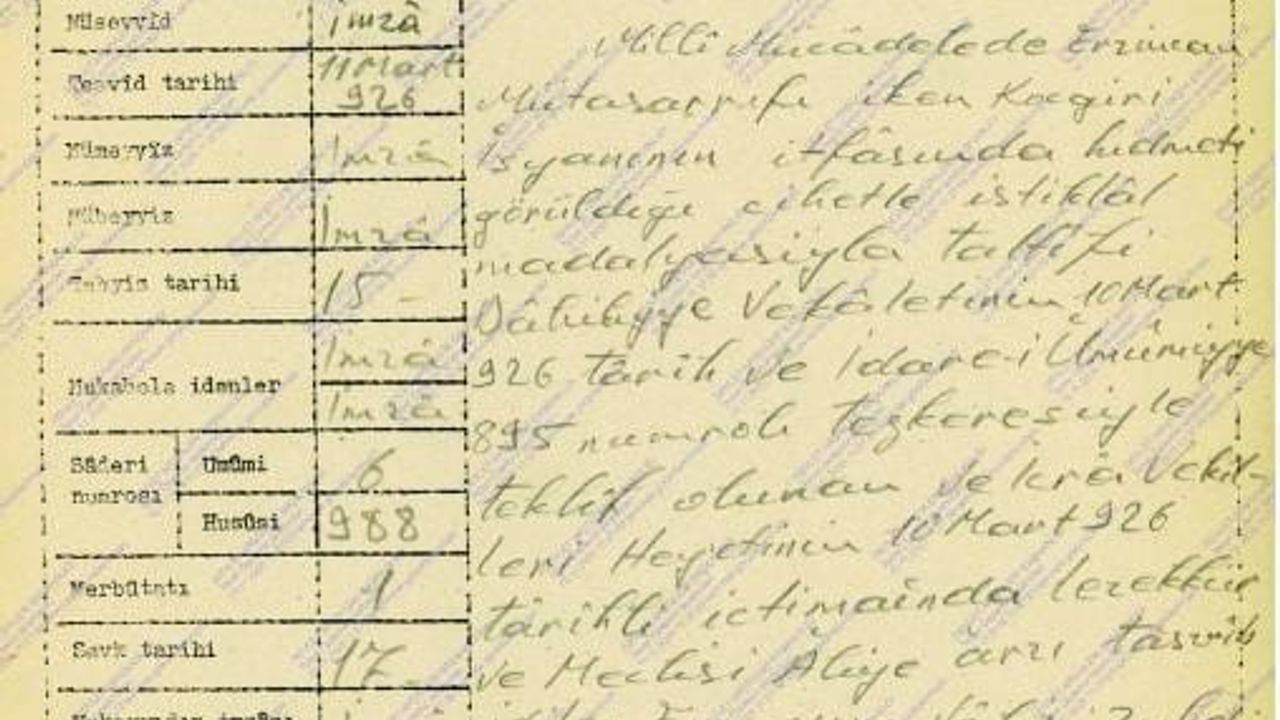 Müsevvid İmzâ
Tesvid tarihi 11 Mart 926
Mümeyyiz İmzâ
Mübeyyiz İmzâ
Tebyiz tarihi 15
Mukabele idenler İmzâ
İmzâ
Sâderi numrosı Umûmi 6
Husûsi 988
Merbûtatı 1
Sevk tarihi 17
Millî Mücâdelede Erzincan
Mütasarrıfı iken Koçgiri
isyanının itfâsında hidmeti
görüldiği cihetle istiklâl
madalyasiyla taltîfi
Dâhiliyye Vekâletinin 10 Mart
926 târih ve İdare-i Umûmiyye
895 numrolı tezkeresiyle
teklîf olunan ve İcrâ Vekil-
leri Heyetinin 10 Mart 926
târihli ictimaında tezekkür
ve Meclisi Âliye arzı tasvib